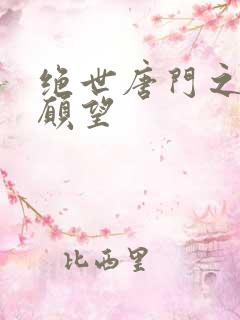 绝世唐门之
愿望
比西里